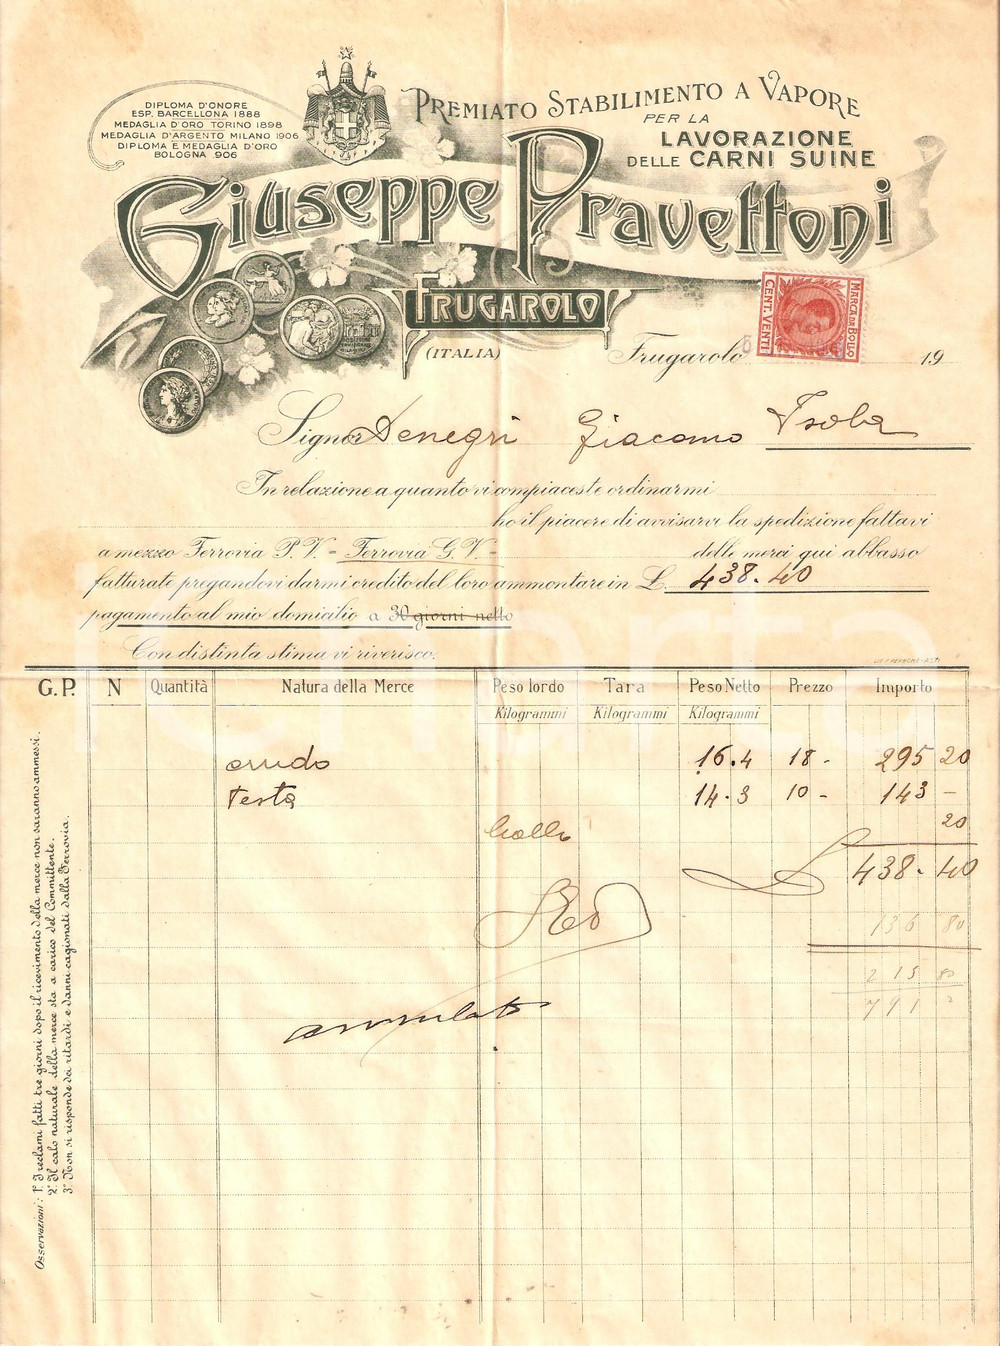 DIPLOMA D'ONORE
ESP. BARCELLONA 1888
MEDAGLIA D'ORO TORINO 1898
MEDAGLIA D'ARGENTO MILANO 1906
DIPLOMA E MEDAGLIA D'ORO
BOLOGNA 906
PREMIATO STABILIMENTO A VAPORE
PER LA
LAVORAZIONE
DELLE CARNI SUINE
GIUSEPPE PRAVETTONI
FRUGAROLO
(ITALIA)
MARCA DA BOLLO
CENT. VENTI
Frugarolo 19
Signor Denegri Giacomo Isola
In relazione a quanto vi compiaceste ordinarmi
ho il piacere di avvisarvi la spedizione fattavi
a mezzo Ferrovia P.V. - Ferrovia G.V. - delle merci qui abbasso
fatturate pregandovi darmi credito del loro ammontare in L. 438.40
pagamento al mio domicilio a 30 giorni netto
Con distinta stima vi riverisco.
G.P. N Quantità Natura della Merce Peso lordo Tara Peso Netto Prezzo Importo
Kilogrammi Kilogrammi Kilogrammi
crudo 16.4 18 - 295 20
Testa 14.3 10 - 143 -
bollo 20
438.40
136 80
215 80
791
annulato
Osservazioni: 1º I reclami fatti tre giorni dopo il ricevimento della merce non saranno ammessi.
2º Il calo naturale della merce sta a carico del Committente.
3º Non si risponde dei ritardi e danni cagionati dalla Ferrovia.